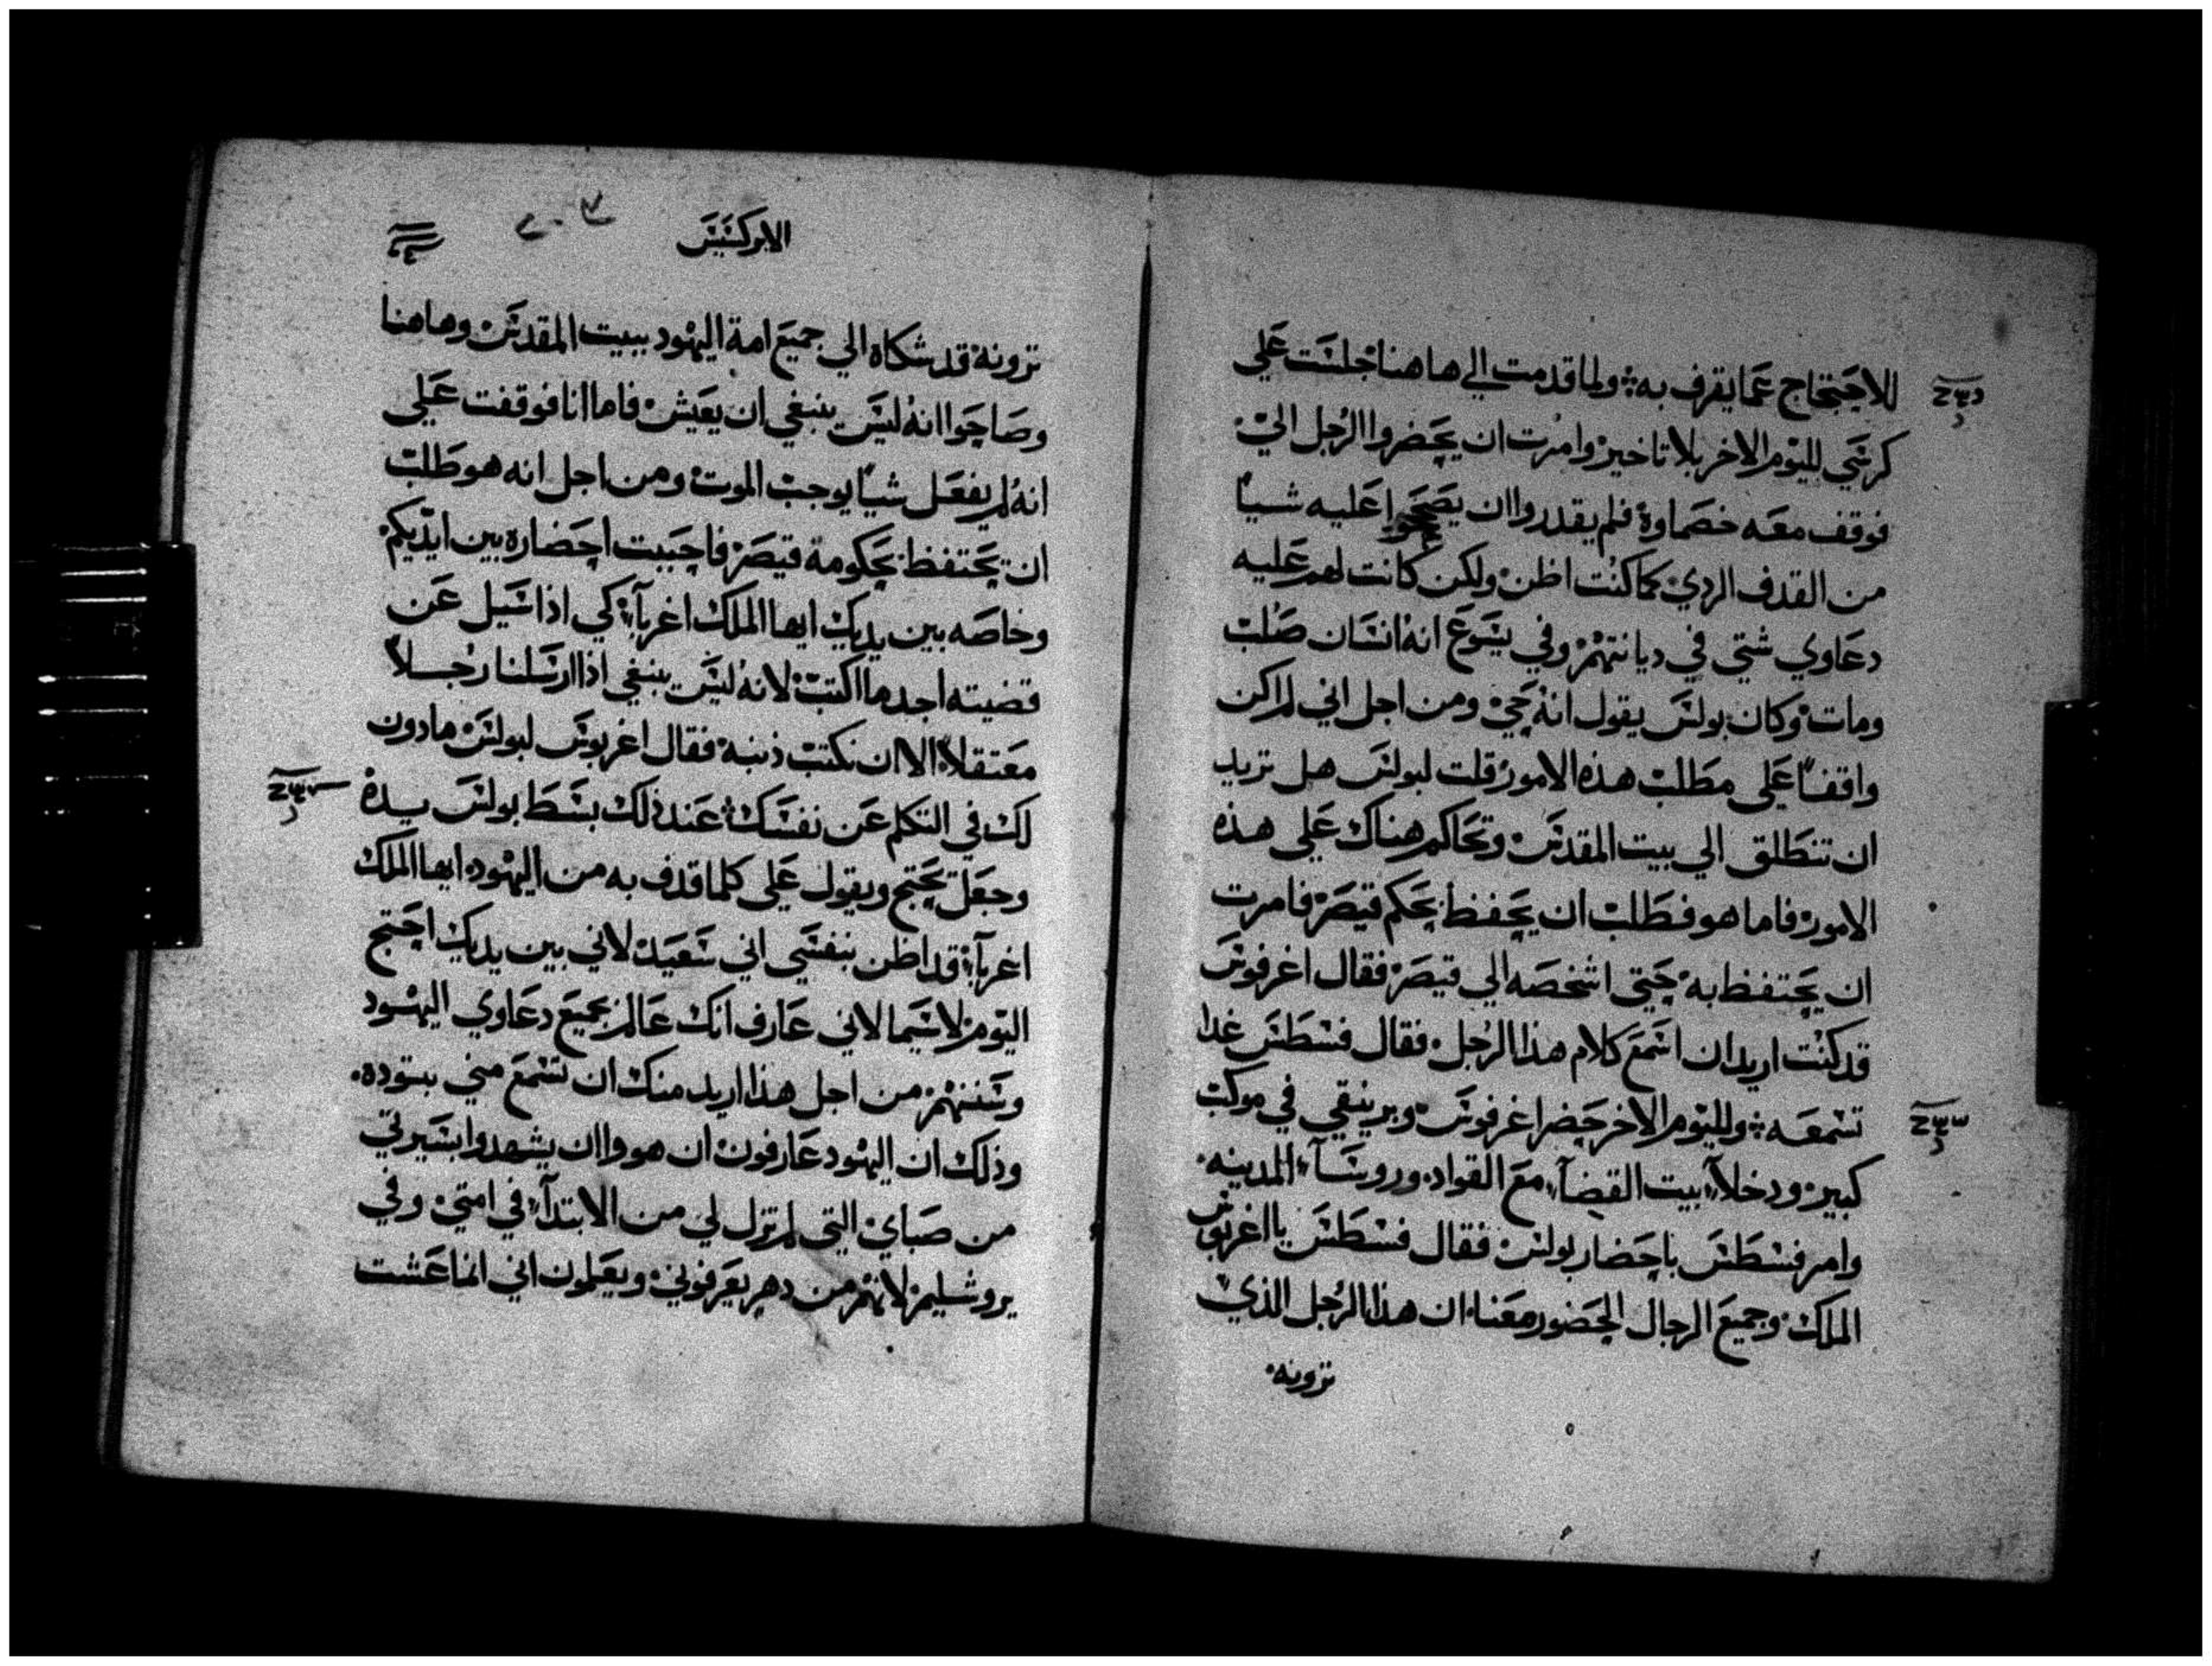 للاحتجاج عما يقرف به ولما قدمت الي هاهنا جلست علي
كرسي لليوم الاخر بلا تاخير وامرت ان يحضروا الرجل الي
فوقف معه خصماوه فلم يقدروا ان يصححوا عليه شيا
من القدف الردي كما كنت اظن ولكن كانت لهم عليه
دعاوي شتي في ديانتهم وفي يسوع انه انسان صلب
ومات وكان بولس يقول انه حي ومن اجل اني لم اكن
واقفا علي مطلب هذه الامور قلت لبولس هل تريد
ان تنطلق الي بيت المقدس وتحاكم هناك علي هذه
الامور فاما هو فطلب ان يحفظ بحكم قيصر فامرت
ان يحتفظ به حتي اشخصه الي قيصر فقال اغرفوس
قد كنت اريد ان اسمع كلام هذا الرجل فقال فسطس غدا
تسمعه ولليوم الاخر حضر اغرفوس وبرينيقي في موكب
كبير ودخلا بيت القضآ مع القواد وروسآ المدينه
وامر فسطس باحضار بولس فقال فسطس يا اغربوس
الملك وجميع الرجال الحضور معنا ان هذا الرجل الذي
ترونه
الابركسيس
ترونه قد شكاه الي جميع امة اليهود ببيت المقدس وهاهنا
وصاحوا انه ليس ينبغي ان يعيش فاما انا فوقفت علي
انه لم يفعل شيا يوجب الموت ومن اجل انه هو طلب
ان يحتفظ بحكومة قيصر فاحببت احضاره بين ايديكم
وخاصه بين يديك ايها الملك اغربآ كي اذا سيل عن
قضيته اجد ما اكتب لانه ليس ينبغي اذا ارسلنا رجلا
معتقلا الا ان نكتب ذنبه فقال اغربوس لبولس مادون
لك في التكلم عن نفسك عند ذلك بسط بولس يده
وجعل يحتج ويقول علي كلما قدف به من اليهود ايها الملك
اغربآ قد اظن بنفسي اني سعيد لاني بين يديك احتج
اليوم لاسيما لاني عارف انك عالم بجميع دعاوي اليهود
وسننهم من اجل هذا اريد منك ان تسمع مني بتوده
وذلك ان اليهود عارفون ان هووا ان يشهدوا بسيرتي
من صباي التي لم تزل لي من الابتدآ في امتي وفي
يروشليم لانهم من دهر يعرفوني ويعلمون اني انما عشت